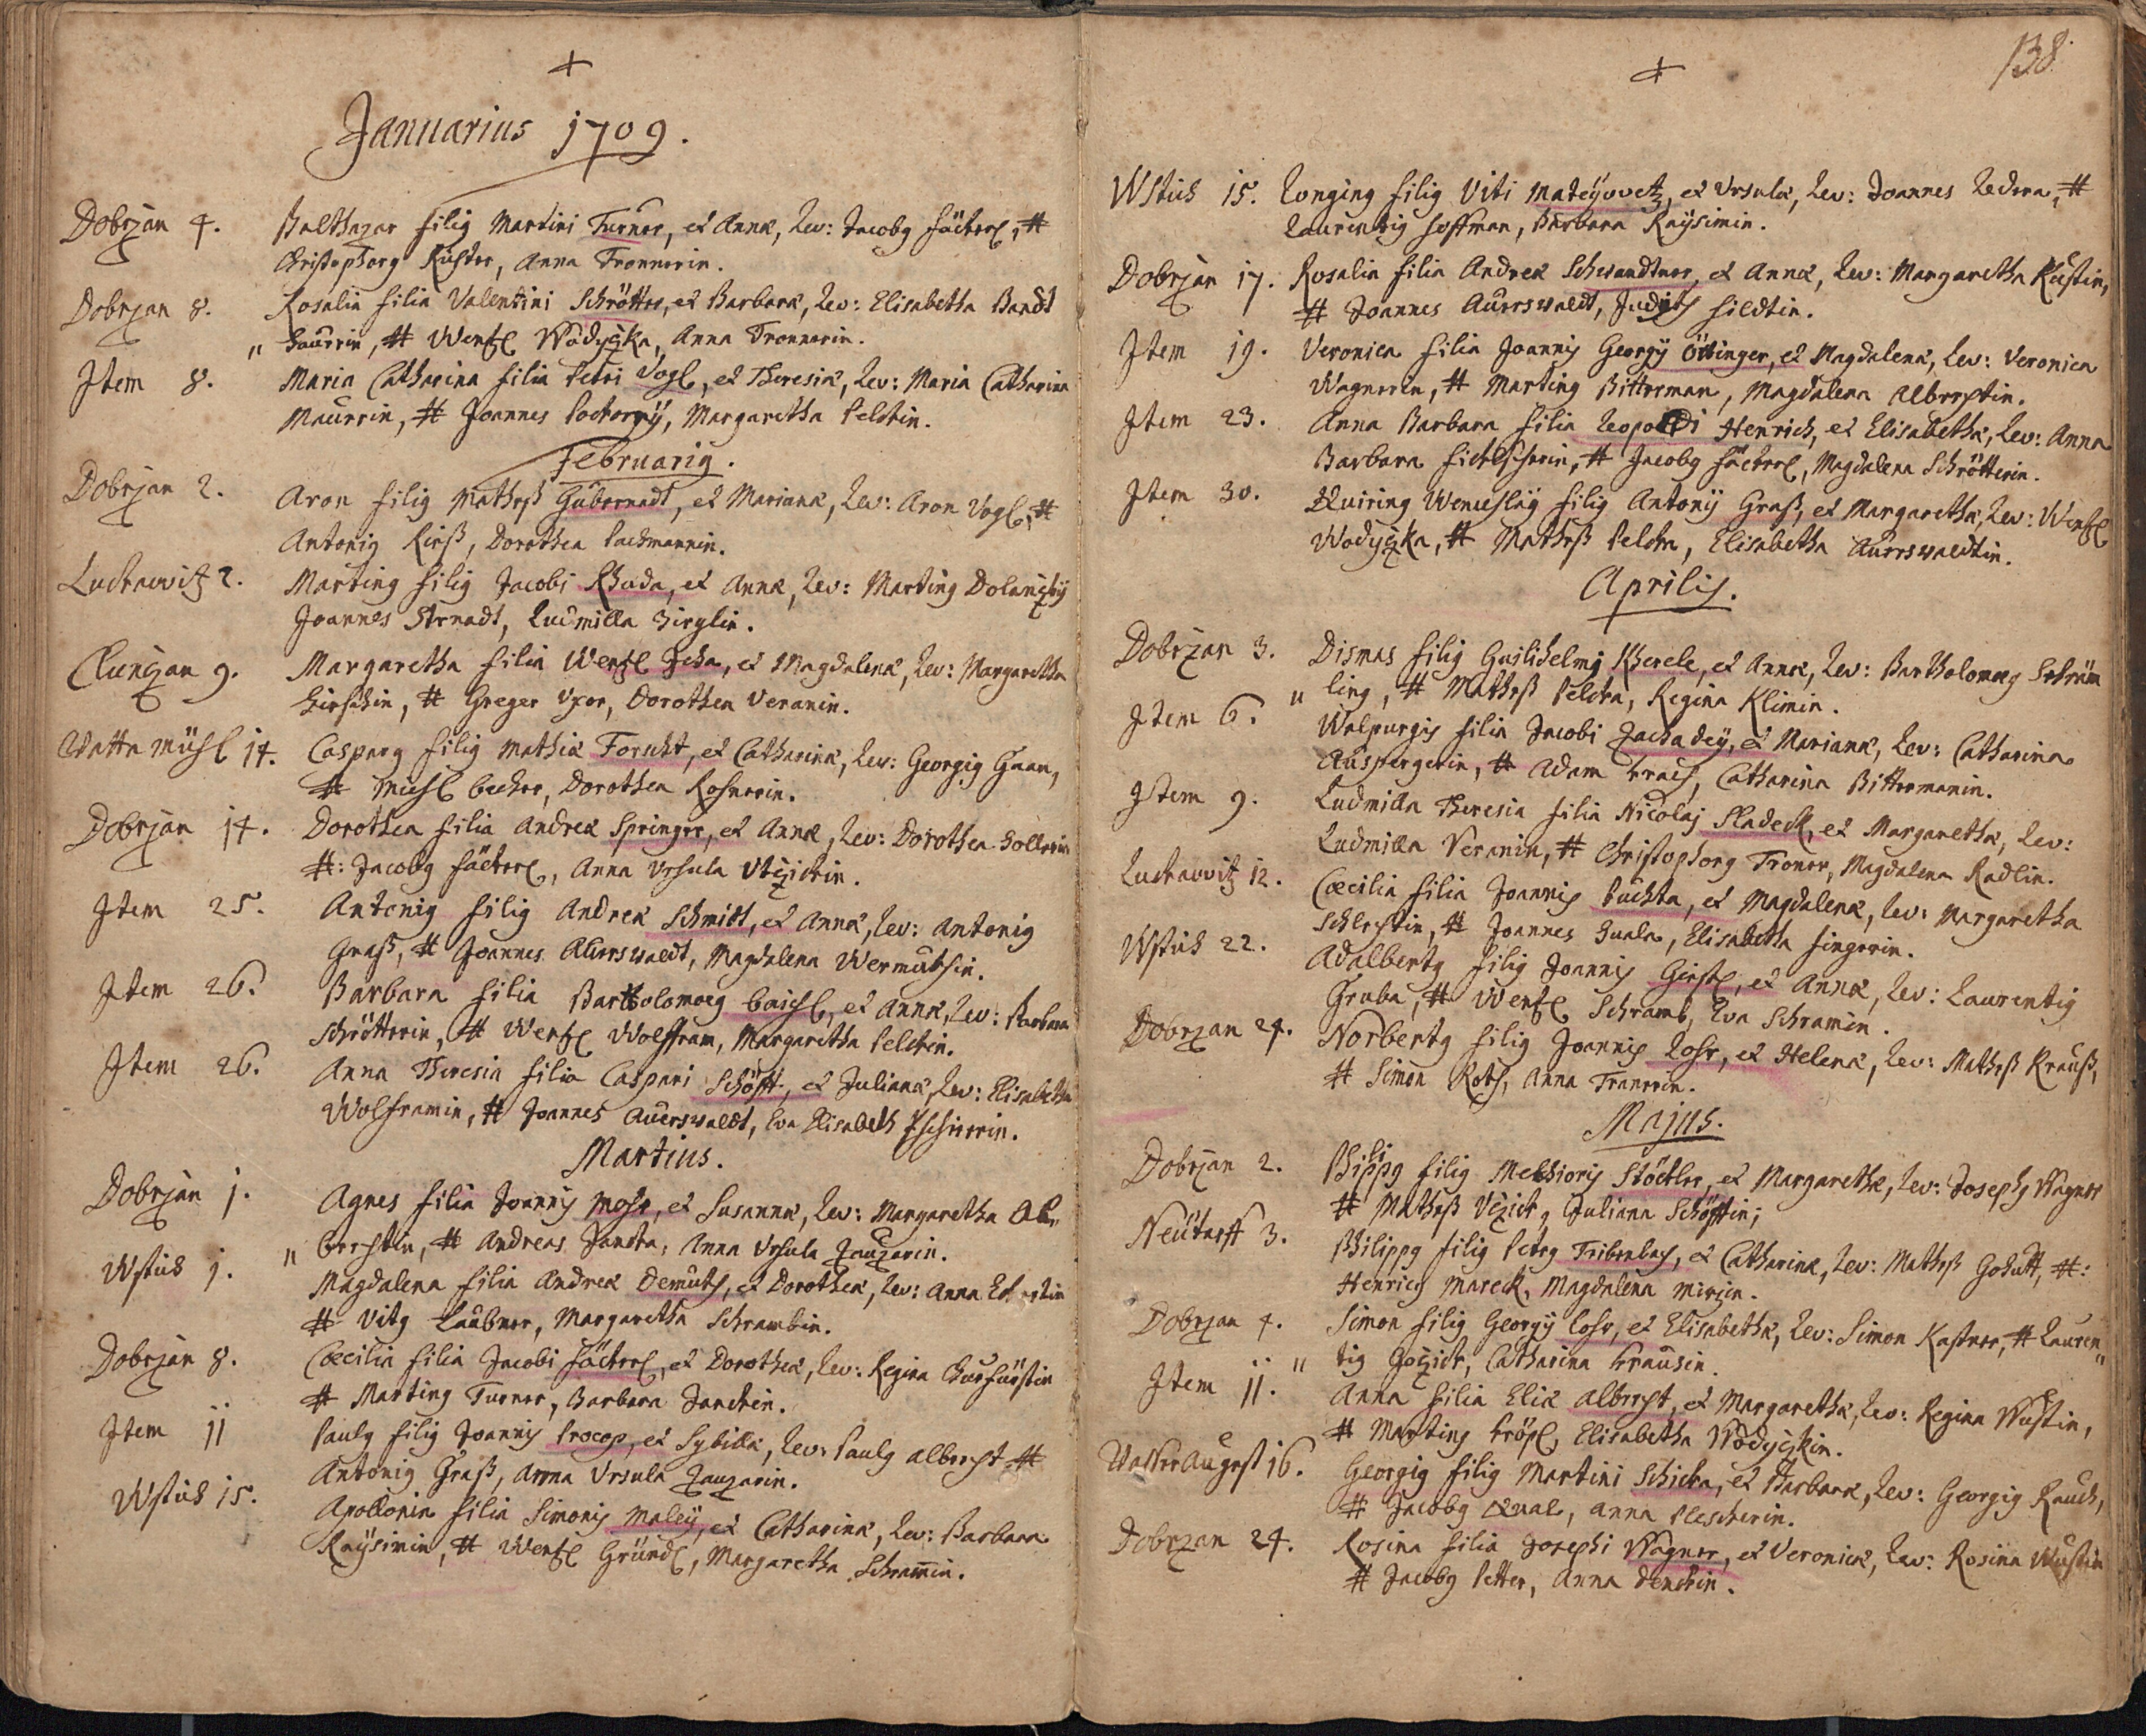 +
Januarius 1709.
Dobrzan 4. Balthazar filig Martini Turner, et Annæ, Lev: Jacobg häckerl, #
Christophorg Küster, Anna Tronnerin.
Dobrzan 8. Rosalia filia Valentini Schrötter, et Barbaræ, Lev: Elisabetha Bandt
„ haurrin, # Wentzl Wodyczka, Anna Tronnerin.
Item 8. Maria Catharina filia Petri Vogl, et Theresiæ, Lev: Maria Catharina
Maurrin, # Joannes Pockorny, Margaretha Peldtin.
Februarig.
Dobrzan 2. Aron filig Matheß Gubernadt, et Marianæ, Lev: Aron Vogl, #
Antonig Kieß, Dorothea Pachmannin.
Luckawitz 2. Marting filig Jacobi Khuda, et Annæ, Lev: Marting Dolanczky
Joannes Strnadt, Ludmilla Zirglin.
Clunczan 9. Margaretha filia Wentzl Jcha, et Magdalenæ, Lev: Margaretha
Hirschin, # Greger Vxor, Dorothea Veranin.
Watta mühl 14. Casparg filig Mathiæ Forscht, et Catharinæ, Lev: Georgig Haan,
# Michl becker, Dorothea Rosnerin.
Dobrzan 14. Dorothea filia Andreæ Springer, et Annæ, Lev: Dorothea Hollerin
#: Jacobg häckerl, Anna Vrsula Vtzickin.
Item 25. Antonig filig Andreæ Schmidt, et Annæ, Lev: Antonig
Graß, # Joannes Auerswaldt, Magdalena Wermuthin.
Item 26. Barbara filia Bartholomæg baischl, et Annæ, Lev: Barbara
Schrötterin, # Wentzl Wolffram, Margaretha Peldtin.
Item 26. Anna Theresia filia Caspari Schöpff, et Julianæ, Lev: Elisabetha
Wolframin, # Joannes Auerswaldt, Eva Elisabeth
Martius.
Dobrzan 1. Agnes filia Joannis Mohr, et Susannæ, Lev: Margaretha Al„
Wstich 1. „ brechtin, # Andreas Janda, Anna Vrsula Zauzarin.
Magdalena filia Andreæ Demuth, et Dorotheæ, Lev: Anna
# Vitg Laubner, Margaretha Schrambin.
Dobrzan 8. Cæcilia filia Jacobi häckerl, et Dorotheæ, Lev: Regina Churfürstin
# Marting Turner, Barbara Jandtin.
Item 11 Paulg filig Joannis Procop, et Sybillæ, Lev: Paulg Albrecht #
Antonig Graß, Anna Vrsula Zauzarin.
Wstich 15. Apollonia filia Simonis Maley, et Catharinæ, Lev: Barbara
Raysimin, # Wentzl Gründl, Margaretha Schramin.
138.
+
Wstich 15. Longing filig Viti Mateyovetz, et Vrsulæ, Lev: Joannes Ledera, #
Laurentig hoffman, Barbara Raysimin.
Dobrzan 17. Rosalia filia Andreæ Schwandtner, et Annæ, Lev: Margaretha Küstin,
# Joannes Auerswaldt, Judith hildtin.
Item 19. Veronica filia Joannis Georgy Öttinger, et Magdalenæ, Lev: Veronica
Wagnerin, # Marting Bitterman, Magdalena Albrechtin.
Item 23. Anna Barbara filia Leopoldi Henrich, et Elisabethæ, Lev: Anna
Barbara, # Jacobg häckerl, Magdalena Schrötterin.
Item 30. Quiring Wenceslaig filig Antony Graß, et Margarethæ, Lev: Wentzl
Wodyczka, # Matheß Peldta, Elisabetha Auerswaldtin.
Aprilis.
Dobrzan 3. Dismas filig Guilihelmi Kherele, et Annæ, Lev: Bartholomæg
Item 6. „ ling, # Matheß Peldta, Regina Klimin.
Walpurgis filia Jacobi Zachadey, et Marianæ, Lev: Catharina
Auspergerin, # Adam Krach, Catharina Bittermanin.
Item 9. Ludmilla Theresia filia Nicolaj Sladeck, et Margarethæ, Lev:
Ludmilla Veranin, # Christophorg Troner, Magdalena Radlin.
Luckawitz 12. Cæcilia filia Joannis Puchta, et Magdalenæ, Lev: Margaretha
Schlechtin, # Joannes Huala, Elisabetha singerin.
Wstich 22. Adalbertg filig Joannis Girstl, et Annæ, Lev: Laurentig
Gruba, # Wentzl Schramb, Eva Schramin.
Dobrzan 24. Norbertg filig Joannis Lohr, et Helenæ, Lev: Matheß Krauß,
# Simon Roth, Anna Tranerin.
Majus.
Dobrzan 2. Philippg filig Melchioris Stöckler, et Margarethæ, Lev: Josephg Wagner
# Matheß Vczick, Juliana Schöpffin;
Neüdorff 3. Philippg filig Petrg Tribenbach, et Catharinæ, Lev: Matheß Gokutt, #:
Henrich Mareck, Magdalena Mirzin.
Dobrzan 4. Simon filig Georgy Lohr, et Elisabethæ, Lev: Simon Kastner, # Lauren„
„ tig Gozick, Catharina Krausin.
Item 11. Anna filia Eliæ Albrecht, et Margarethæ, Lev: Regina Wustin,
# Marting Kröpl, Elisabetha Wodyczkin.
Vatter August 16. Georgig filig Martini Schicka, et Barbaræ, Lev: Georgig Rauch,
# Jacobg Qual, Anna Plescherin.
Dobrzan 24. Rosina filia Josephi Wagner, et Veronicæ, Lev: Rosina Wustin
# Jacobg Petter, Anna Denckin.